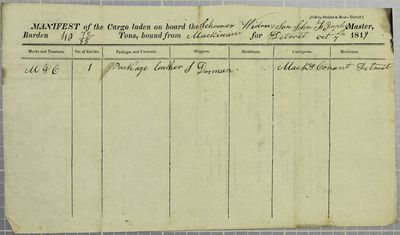 [Sold by Sheldon & Reed—Detroit.]
MANIFEST of the Cargo laden on board the Schooner Widows Son John Master,
Burden 40 Tons, bound from Mackinaw for Detroit Oct 7th 1819
Marks and Numbers. No. of Entries. Packages and Contents. Shippers. Residence. Consignees. Residence.
M & C 1 Package leather J Dorman Mack & Conant Detroit